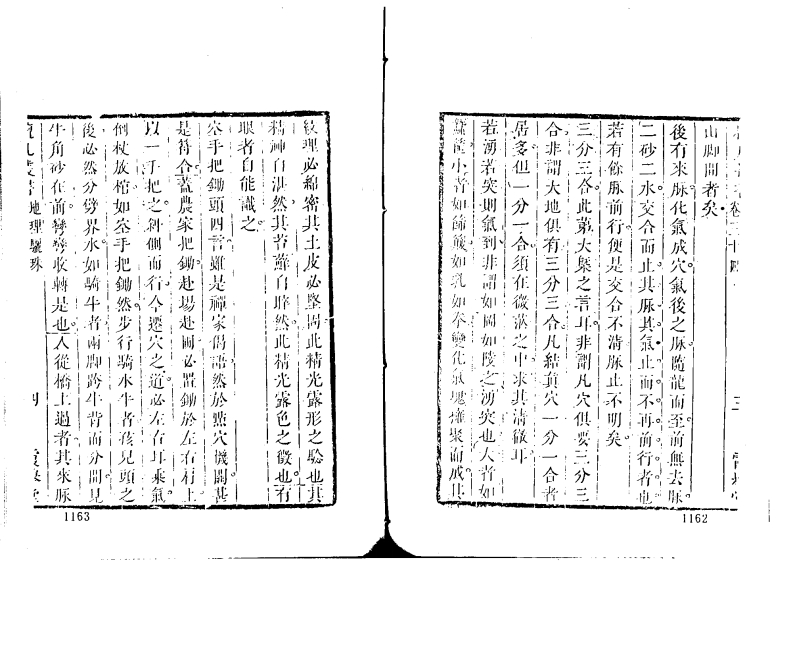 山脚間者矣
後有來脉化氣成穴氣後之脉隨龍而至前無去脉
二砂二水交合而止其脉其氣止而不再前行者也
若有餘脉前行便是交合不清脉止不明矣
三分三合此第大槩之言耳非謂凡穴俱要三分三
合非謂大地俱有三分三合凡結眞穴一分一合者
居多但一分一合須在微茫之中求其清微耳
若湧若突則氣到非謂如岡如陵之湧突也大者如
小者如乳如拳變化氣聚而成其
1162
紋理必綿密其土皮必堅固此精光露形之驗也其
精神自湛然其苔蘚自睟然此精光露色之徵也有
眼者自能識之
空手把鋤頭四言雖是禪家偈語然於點穴機關甚
是符合蓋農家把鋤赴場赴圃必置鋤於左右肩上
以一手把之斜側而行今遷穴之道必左右耳乘氣
倒杖放棺如空手把鋤然步行騎水牛者孩兒頭之
後必然分劈界水如騎牛者兩脚跨牛背而分開見
牛角砂在前彎彎收轉是也人從橋上過者其來脉
地理驪珠
1163